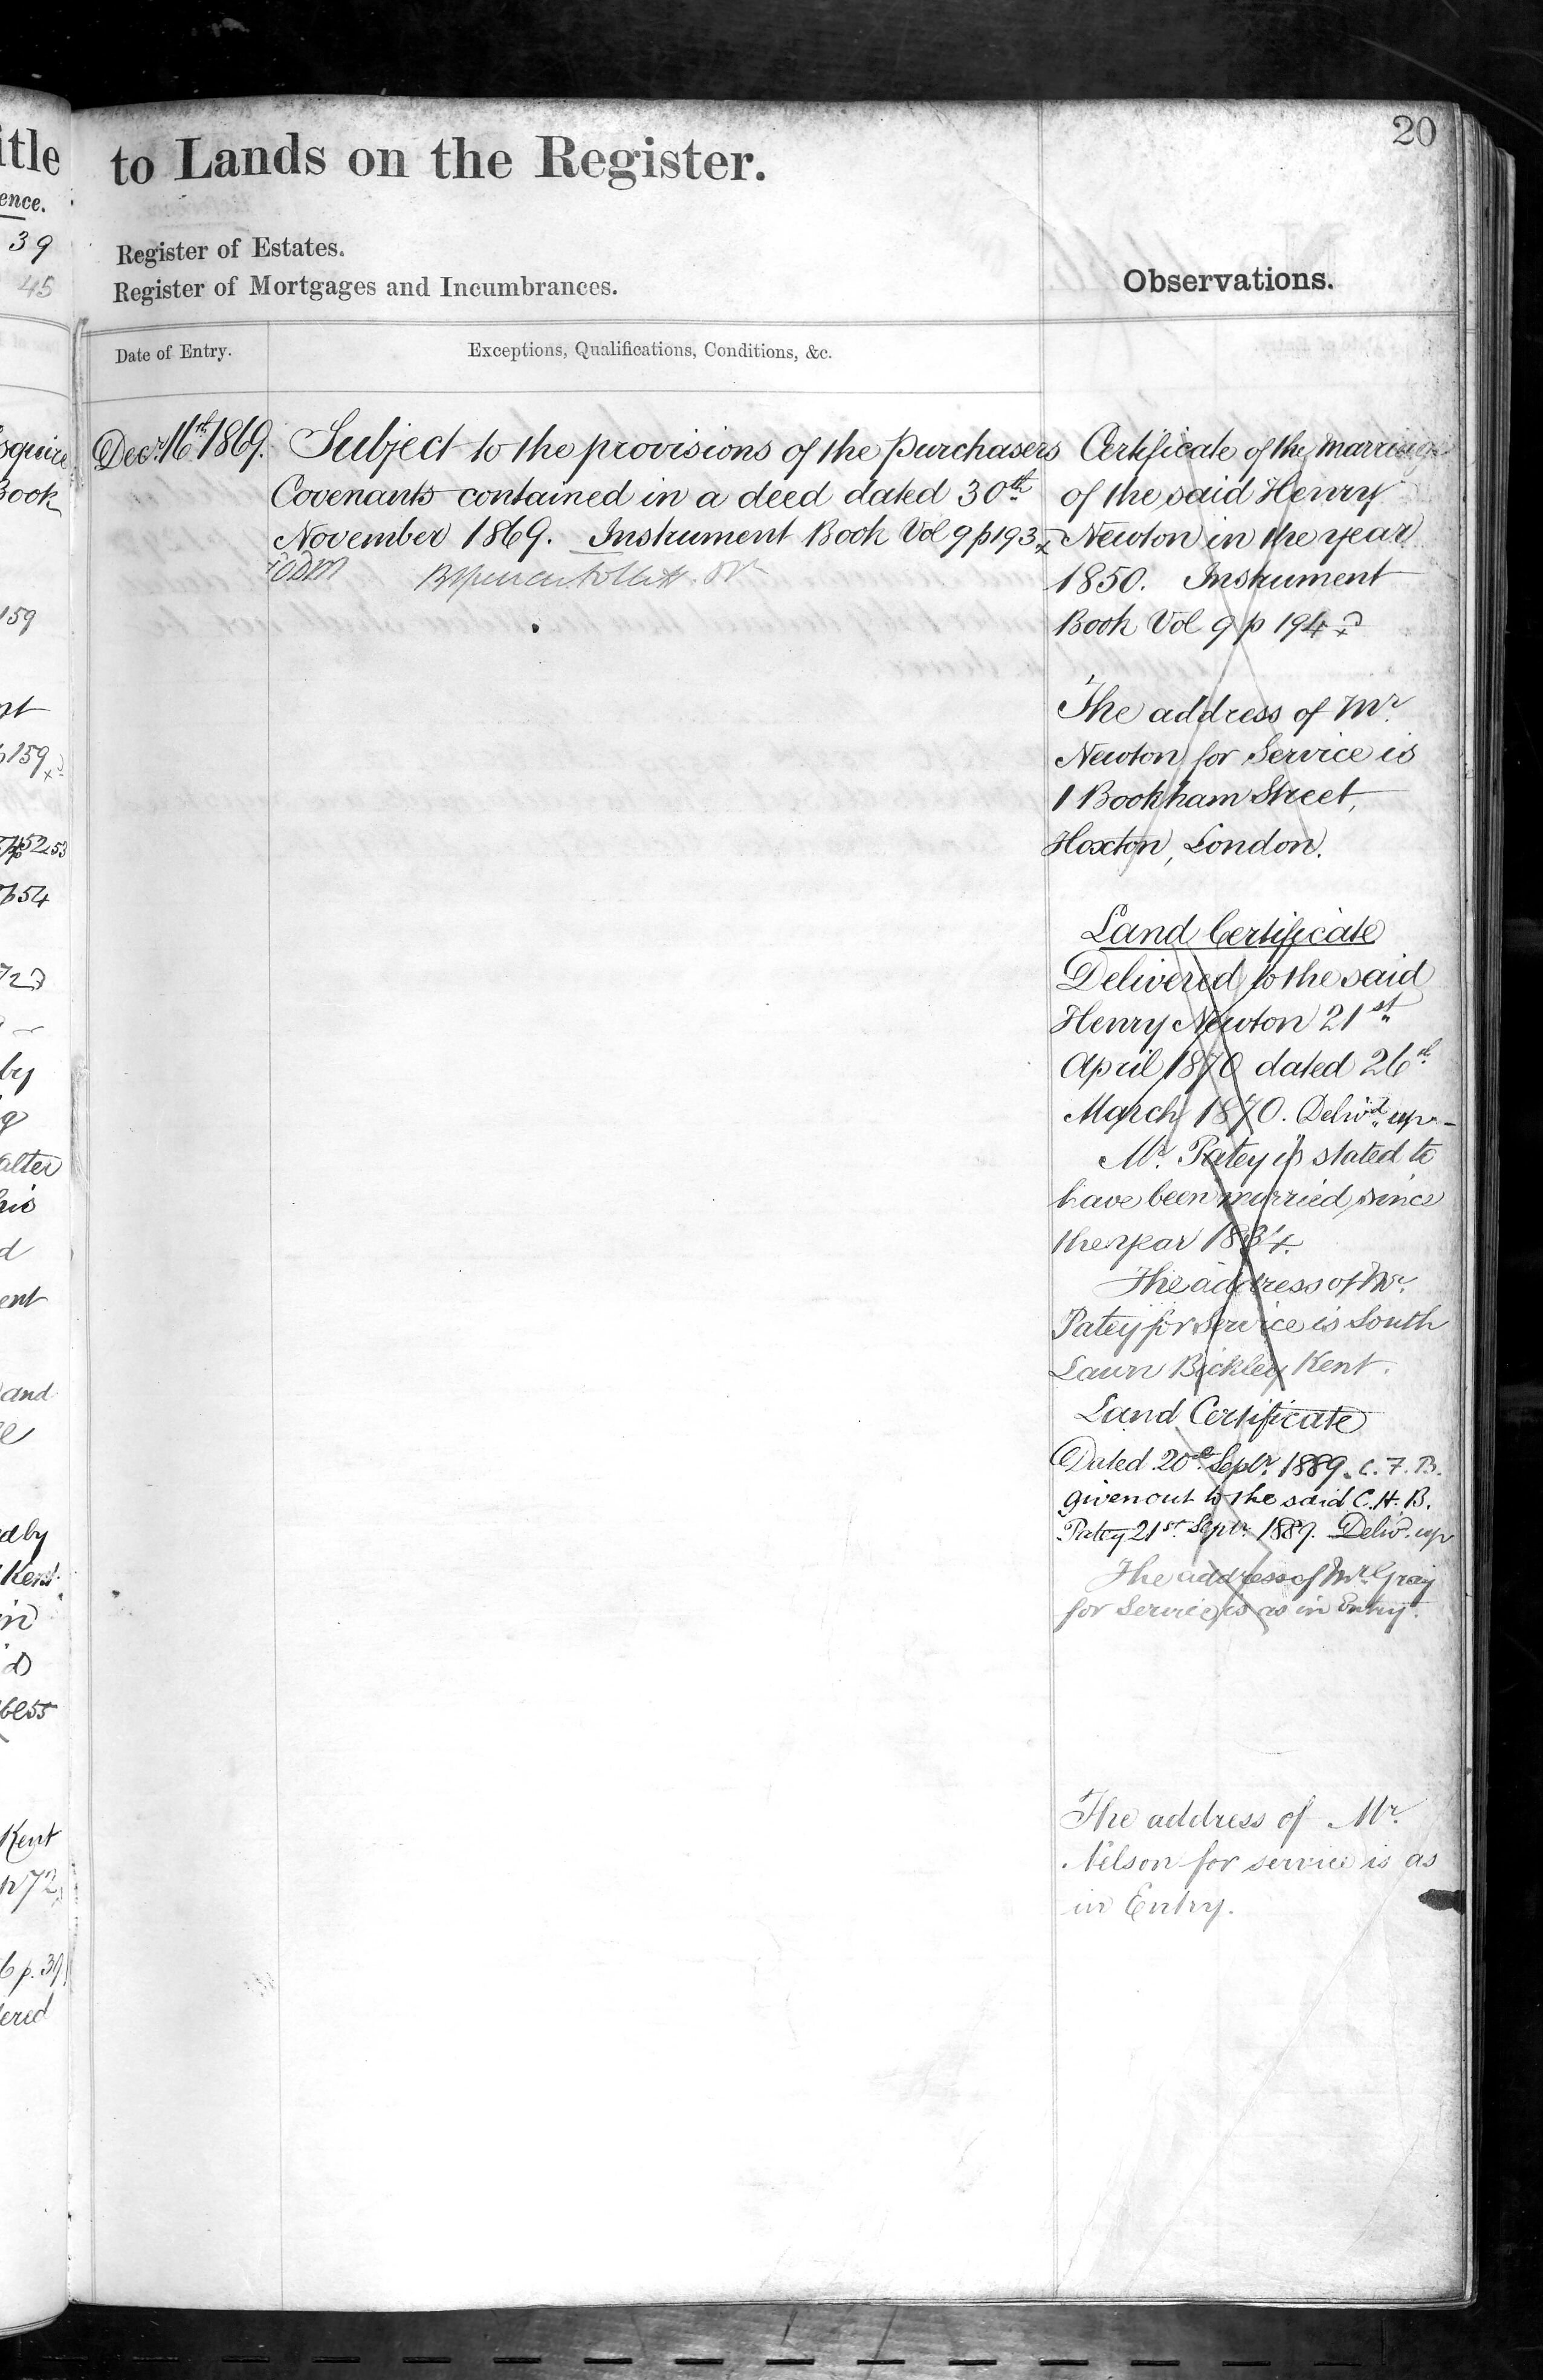 20
to Lands on the Register.
Register of Estates.
Register of Mortgages and Incumbrances.
Observations.
Date of Entry.
Exceptions, Qualifications, Conditions, &c.
Decr. 16th 1869.
Subject to the provisions of the Purchasers
Covenants contained in a deed dated 30th
November 1869. Instrument Book Vol 9 p 193
Certificate of the marriage
of the said Henry
Newton in the year
1850. Instrument
Book Vol 9 p 194
The address of Mr.
Newton for Service is
1 Bookham Street,
Hoxton, London.
Land Certificate
Delivered to the said
Henry Newton 21st
April 1870 dated 26th
March 1870. Delivd. up-
Mr. Patey is stated to
have been married since
the year 1834.
The address of Mr.
Patey for Service is South
Lawn Bickley Kent.
Land Certificate
Dated 20th Septr. 1889. C. F. B.
given out to the said C. H. B.
Patey 21st Septr. 1889. Delivd. up
The address of Mr Gray
for Service is as in Entry.
The address of Mr.
Nelson for service is as
in Entry.
itle
ence.
39
45
squire
Book
159
p 159
p 54
by
alter
his
d
ent
and
d by
Kent
in
Kent
p 72
6 p. 39
ered